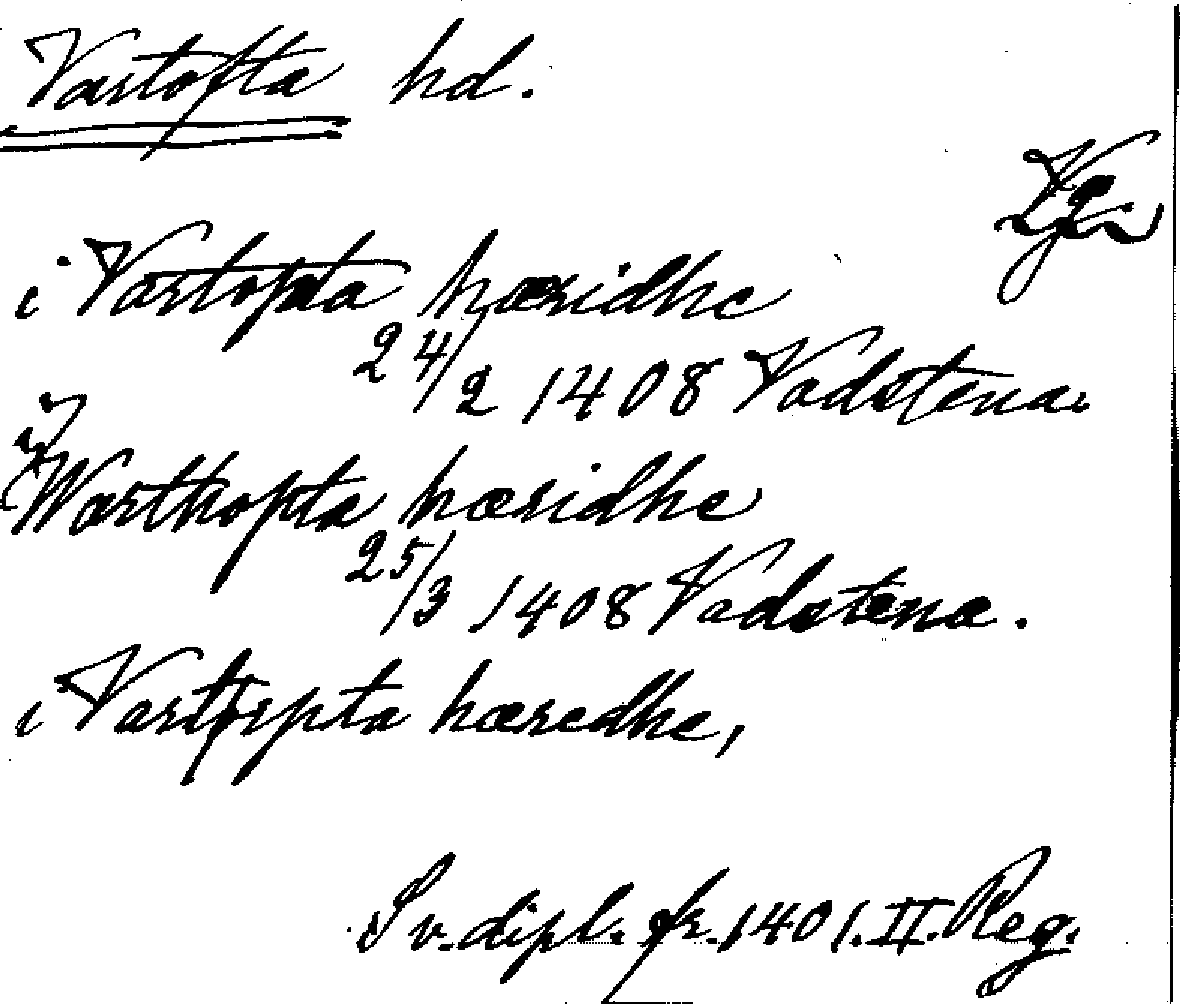 Vartofta hd.
Vg.
i Vartopta hæridhe
24/2 1408 Vadstena.
i Warthopta hæridhe
25/3 1408 Vadstena.
i Vartopta hæredhe,
Sv. dipl. fr. 1401. II. Reg.